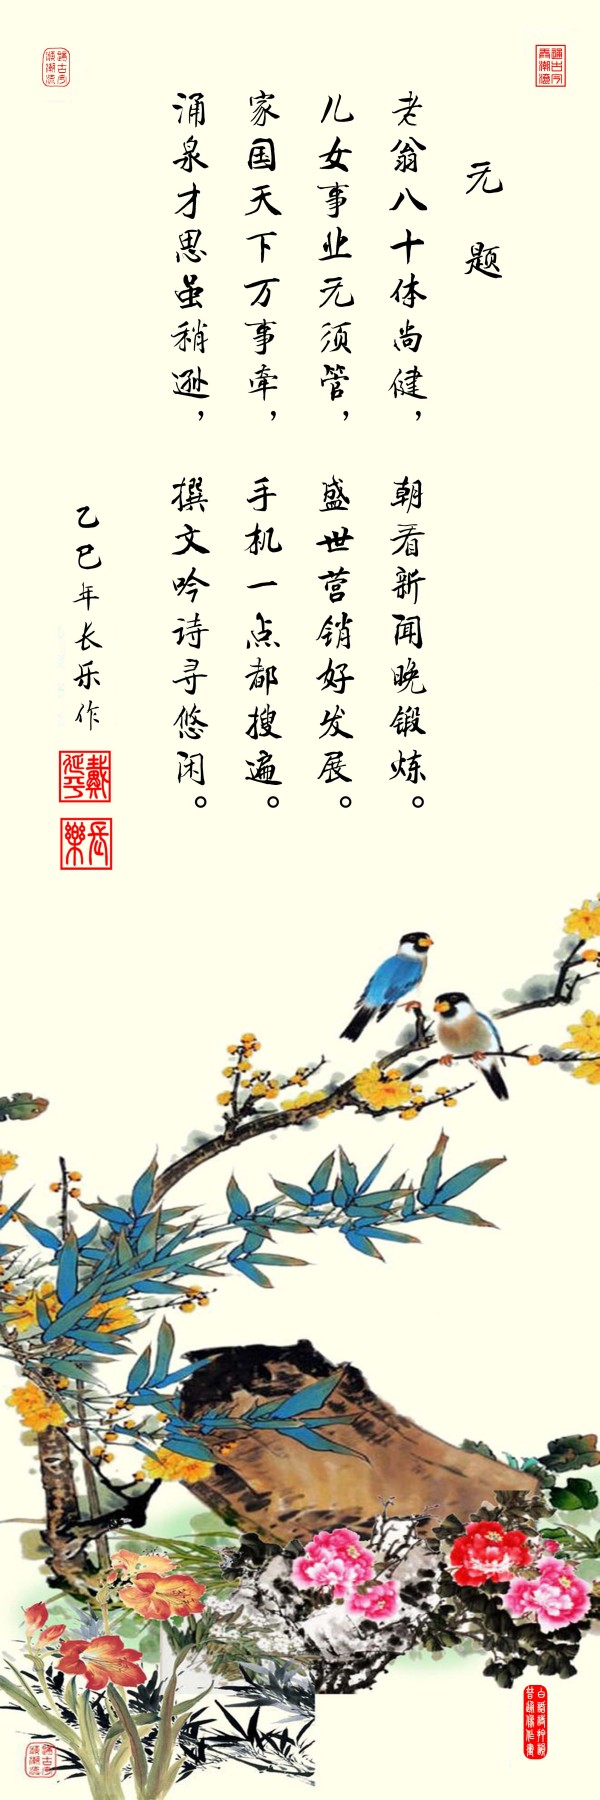 无题
老翁八十体尚健，朝看新闻晚锻炼。
儿女事业无须管，盛世营销好发展。
家国天下万事牵，手机一点都搜遍。
涌泉才思虽稍逊，撰文吟诗寻悠闲。
乙巳年长乐作
戴延平
长樂